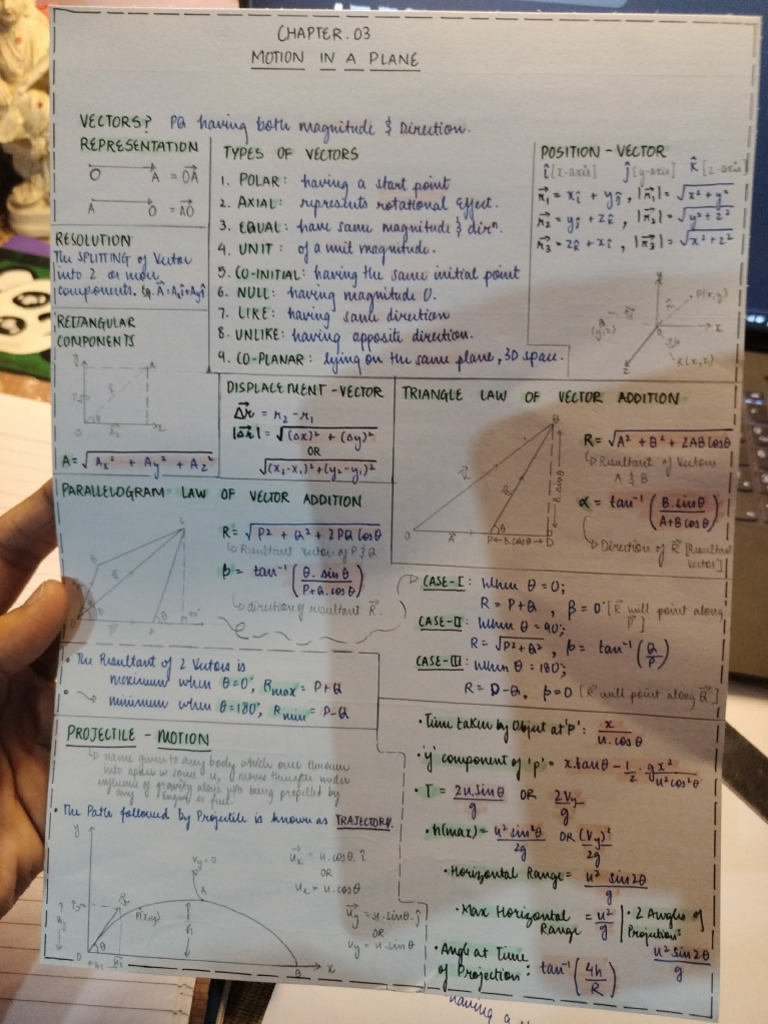 CHAPTER. 03
MOTION IN A PLANE
VECTORS? PQ having both magnitude & Direction.
REPRESENTATION
O A = OA
A O = AO
RESOLUTION
The SPLITTING of Vector
into 2 or more
components. Eg. A = Axî + Ayĵ
RECTANGULAR
COMPONENTS
A = √Ax² + Ay² + Az²
TYPES OF VECTORS
1. POLAR: having a start point
2. AXIAL: represents rotational Effect.
3. EQUAL: have same magnitude & dirⁿ.
4. UNIT: of a unit magnitude.
5. CO-INITIAL: having the same initial point
6. NULL: having magnitude 0.
7. LIKE: having same direction
8. UNLIKE: having opposite direction.
9. CO-PLANAR: lying on the same plane, 3D space.
POSITION - VECTOR
î [x-axis] ĵ [y-axis] k̂ [z-axis]
r₁ = xî + yĵ, |r₁| = √x² + y²
r₂ = yĵ + zk̂, |r₂| = √y² + z²
r₃ = zk̂ + xî, |r₃| = √x² + z²
P(x,y)
(y,z)
R(x,z)
DISPLACEMENT - VECTOR
Δr = r₂ - r₁
|Δr| = √(Δx)² + (Δy)²
OR
√(x₂-x₁)² + (y₂-y₁)²
TRIANGLE LAW OF VECTOR ADDITION
R = √A² + B² + 2AB cosθ
Resultant of Vectors
A & B
α = tan⁻¹ (B.sinθ / A+B cosθ)
Direction of R [Resultant
vector]
B sinθ
B cosθ
PARALLELOGRAM LAW OF VECTOR ADDITION
R = √P² + Q² + 2PQ cosθ
Resultant vector of P & Q
β = tan⁻¹ (Q. sinθ / P+Q. cosθ)
direction of resultant R.
CASE-I: When θ = 0;
R = P+Q, β = 0° [R will point along
P]
CASE-II: When θ = 90;
R = √P²+Q², β = tan⁻¹ (Q/P)
CASE-III: when θ = 180;
R = P-Q, β=0 [R will point along Q]
• The Resultant of 2 Vectors is
maximum when θ=0°, Rmax = P+Q
minimum when θ=180°, Rmin = P-Q
PROJECTILE - MOTION
name given to any body which once thrown
into space w some u, moves thereafter under
influence of gravity alone w/o being propelled by
any engine or fuel.
• The Path followed by Projectile is known as TRAJECTORY.
Vy = 0
P(x,y)
ux = u.cosθ. î
OR
ux = u.cosθ
uy = u.sinθ. ĵ
OR
vy = u.sinθ
• Time taken by Object at 'P': x / u.cosθ
• 'y' component of 'P' = x.tanθ - 1/2 . gx² / u²cos²θ
• T = 2u.sinθ / g OR 2Vy / g
• h(max) = u² sin²θ / 2g OR (Vy)² / 2g
• Horizontal Range = u² sin2θ / g
• Max Horizontal Range = u² / g
• 2 Angles of
Projection:
u² sin2θ / g
• Angle at Time
of Projection: tan⁻¹ (4h / R)
having a